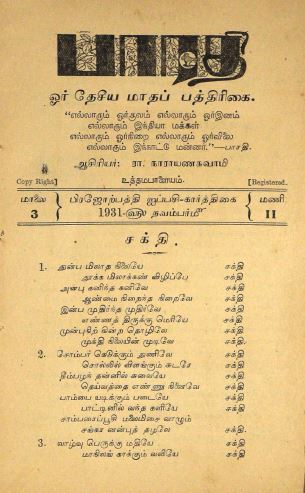 பாரதி
ஓர் தேசீய மாதப் பத்திரிகை.
"எல்லாரும் ஓர்குலம் எல்லாரும் ஓர்இனம்
எல்லாரும் இந்தியா மக்கள்
எல்லாரும் ஓர்நிறை எல்லாரும் ஓர்விலை
எல்லாரும் இந்நாட்டு மன்னர்."—பாரதி.
ஆசிரியர்: ரா. நாராயணசுவாமி
Copy Right] உத்தமபாளையம். [Registered.
மாலை 3 } பிரஜோற்பத்தி ஐப்பசி-கார்த்திகை 1931-ளு நவம்பர்மீ { மணி 11
சக்தி.
1. துன்ப மிலாத நிலையே சக்தி
தூக்க மிலாக்கண் விழிப்பே சக்தி
அன்பு கனிந்த கனிவே சக்தி
ஆண்மை நிறைந்த நிறைவே சக்தி
இன்ப முதிர்ந்த முதிர்வே சக்தி
எண்ணத் திருக்கு மெரியே சக்தி
முன்புநிற் கின்ற தொழிலே சக்தி
முக்தி நிலையின் முடிவே சக்தி.
2. சோம்பர் கெடுக்கும் துணிவே சக்தி
சொல்லில் விளங்கும் சுடரே சக்தி
தீம்பழந் தன்னில் சுவையே சக்தி
தெய்வத்தை எண்ணு நினைவே சக்தி
பாம்பை யடிக்கும் படையே சக்தி
பாட்டினில் வந்த களியே சக்தி
சாம்பரைப்பூசி மலைமிசை வாழும்
சங்கர னன்புத் தழலே சக்தி.
3. வாழ்வு பெருக்கு மதியே சக்தி
மாநிலங் காக்கும் வலியே சக்தி